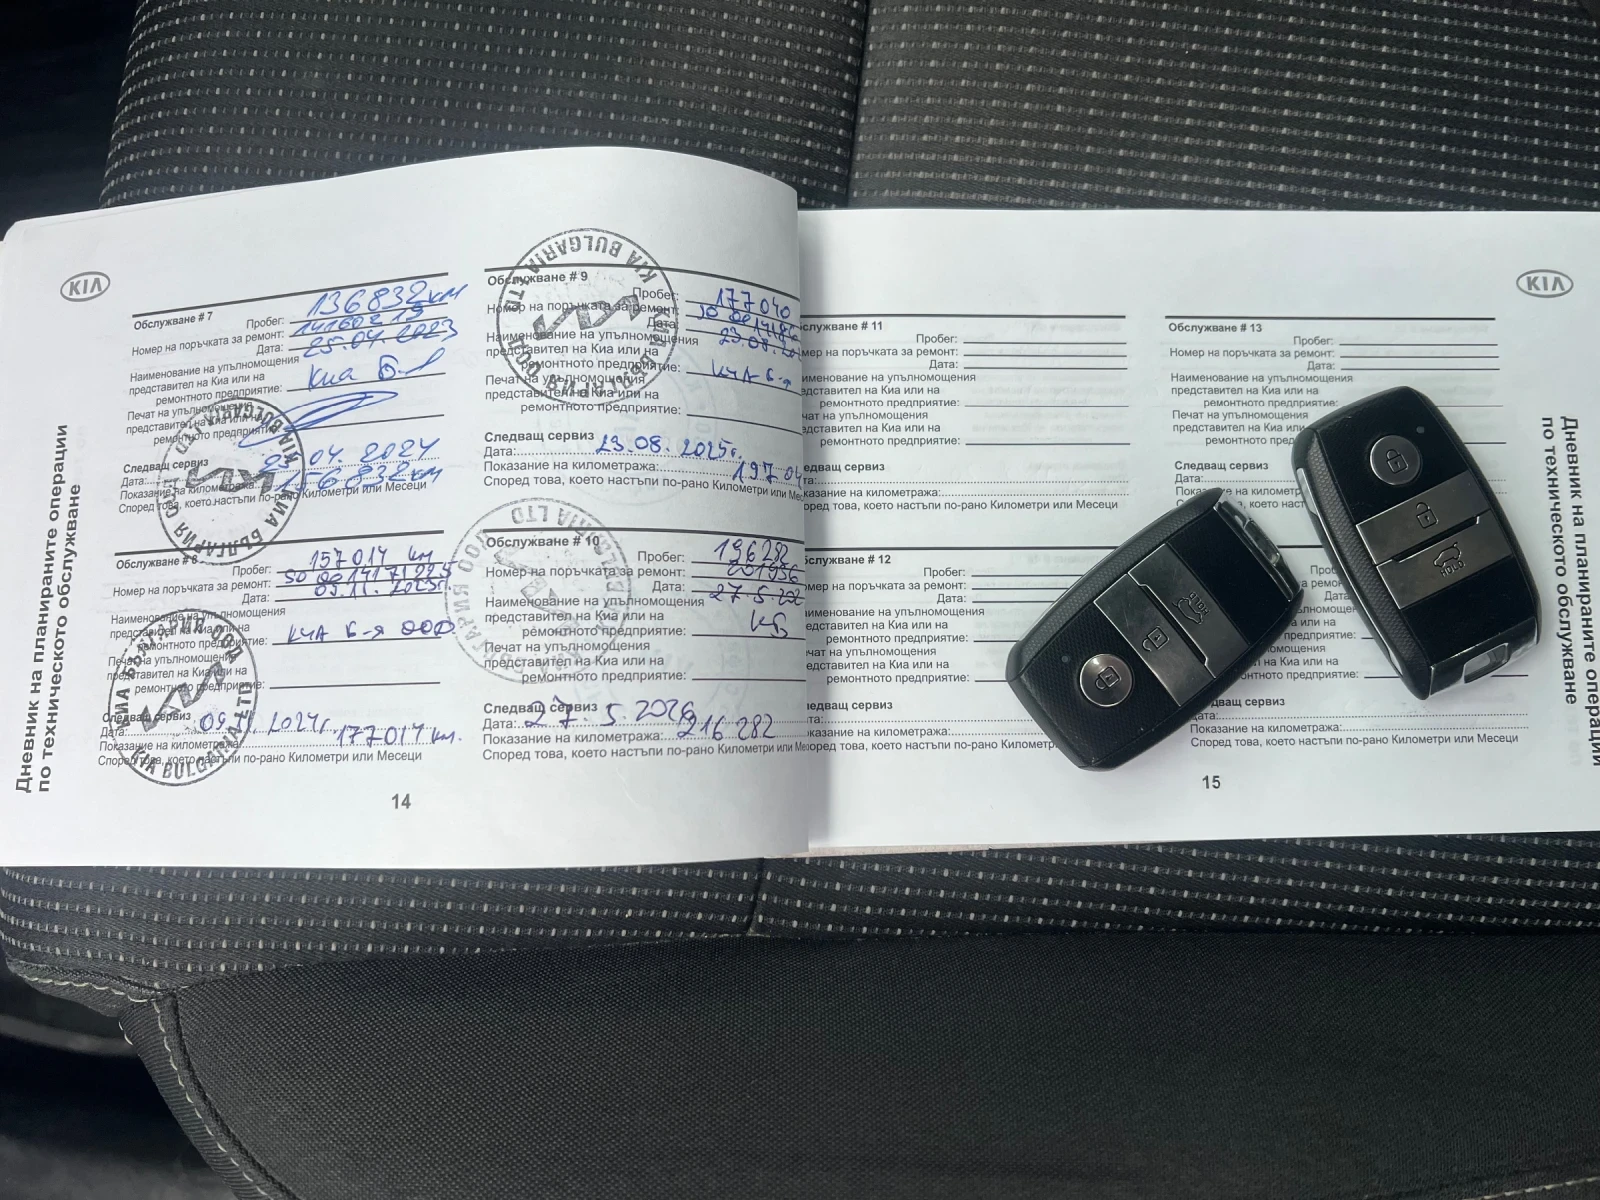 KIA
Дневник на планираните операции
по техническото обслужване
Обслужване # 7
Пробег: 136832 км
Номер на поръчката за ремонт: 14160219
Дата: 25.04.2023
Наименование на упълномощения
представител на Киа или на
ремонтното предприятие: Киа
Печат на упълномощения
представител на Киа или на
ремонтното предприятие
Следващ сервиз
Дата: 25.04.2024
Показание на километража: 156832 км
Според това, което настъпи по-рано Километри или Месеци
Обслужване # 8
Пробег: 157017 км
Номер на поръчката за ремонт:
Дата: 09.11.
Наименование на упълномощения
представител на Киа или на
ремонтното предприятие: КИА Б-я ООД
Печат на упълномощения
представител на Киа или на
ремонтното предприятие:
Следващ сервиз
Дата: 09.11.2024г.
Показание на километража: 177017 км.
Според това, което настъпи по-рано Километри или Месеци
КИА БЪЛГАРИЯ ООД
KIA BULGARIA LTD
Обслужване # 9
Пробег: 177040
Номер на поръчката за ремонт:
Дата: 23.08.
Наименование на упълномощения
представител на Киа или на
ремонтното предприятие: КИА Б-я
Печат на упълномощения
представител на Киа или на
ремонтното предприятие:
Следващ сервиз
Дата: 23.08.2025г.
Показание на километража: 197.04
Според това, което настъпи по-рано Километри или Мес
Обслужване # 10
Пробег: 196282
Номер на поръчката за ремонт: 201956
Дата: 27.5.202
Наименование на упълномощения
представител на Киа или на
ремонтното предприятие: КБ
Печат на упълномощения
представител на Киа или на
ремонтното предприятие:
Следващ сервиз
Дата: 27.5.2026
Показание на километража: 216.282
Според това, което настъпи по-рано Километри или Ме
14
служване # 11
Пробег:
мер на поръчката за ремонт:
Дата:
именование на упълномощения
едставител на Киа или на
ремонтното предприятие:
чат на упълномощения
едставител на Киа или на
ремонтното предприятие:
едващ сервиз
та:
казание на километража:
оред това, което настъпи по-рано Километри или Месеци
служване # 12
Пробег:
мер на поръчката за ремонт:
Дата:
именование на упълномощения
едставител на Киа или на
ремонтното предприятие:
чат на упълномощения
едставител на Киа или на
ремонтното предприятие:
едващ сервиз
та:
казание на километража:
оред това, което настъпи по-рано Километри или
KIA
Обслужване # 13
Пробег:
Номер на поръчката за ремонт:
Дата:
Наименование на упълномощения
представител на Киа или на
ремонтното предприятие:
Печат на упълномощения
представител на Киа или на
ремонтното пред
Следващ сервиз
Дата:
Според това, кое
HOLD
HOLD
Дата:
Показание на километража:
Според това, което настъпи по-рано Километри или Месеци
15
Дневник на планираните операции
по техническото обслужване